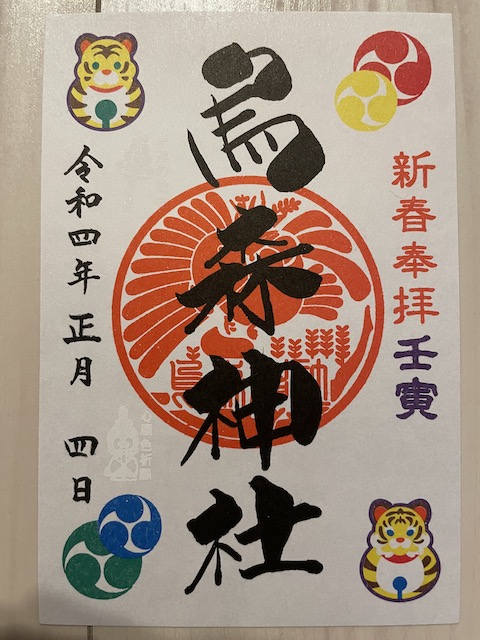 新春奉拝壬寅
烏森神社
令和四年正月 四日
心願色祈願